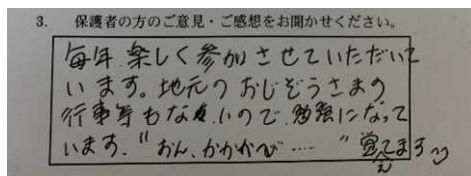 3. 保護者の方のご意見・ご感想をお聞かせください。
毎年 楽しく参加させていただいて
います。地元の おじぞうさまの
行事等もないので、勉強になって
います。"おん、かかかび……" 覚えてます